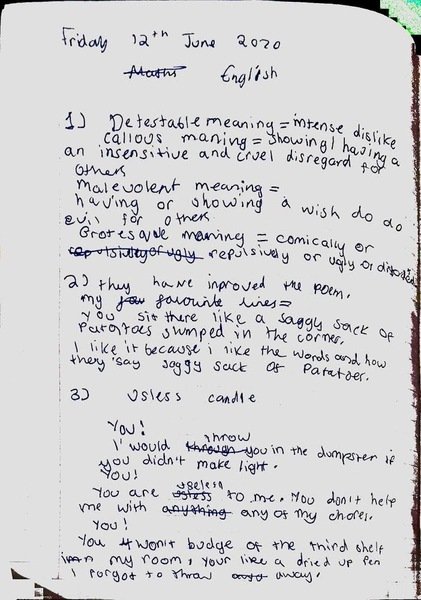 Friday 12th June 2020
Maths English
1) Detestable meaning = intense dislike
callous maning = showing/having a
an insensitive and cruel disregard for
others
malevolent meaning =
having or showing a wish do do
evil for others
Grotesque maning = comically or
repulsivley or ugly repulsively or ugly or distorted
2) they have inproved the poem.
my fav favourite lines=
you sit there like a saggy sack of
Patatoes slumped in the corner.
I like it because i like the words and how
they say saggy sack of Patatoes.
3) Usless candle
You!
I would through throw you in the dumpster if
you didn't make light.
You!
You are usless useless to me. You don't help
me with anything any of my chores.
You!
You won't budge of the third shelf
in my room, your like a dried up pen
I forgot to throw away.